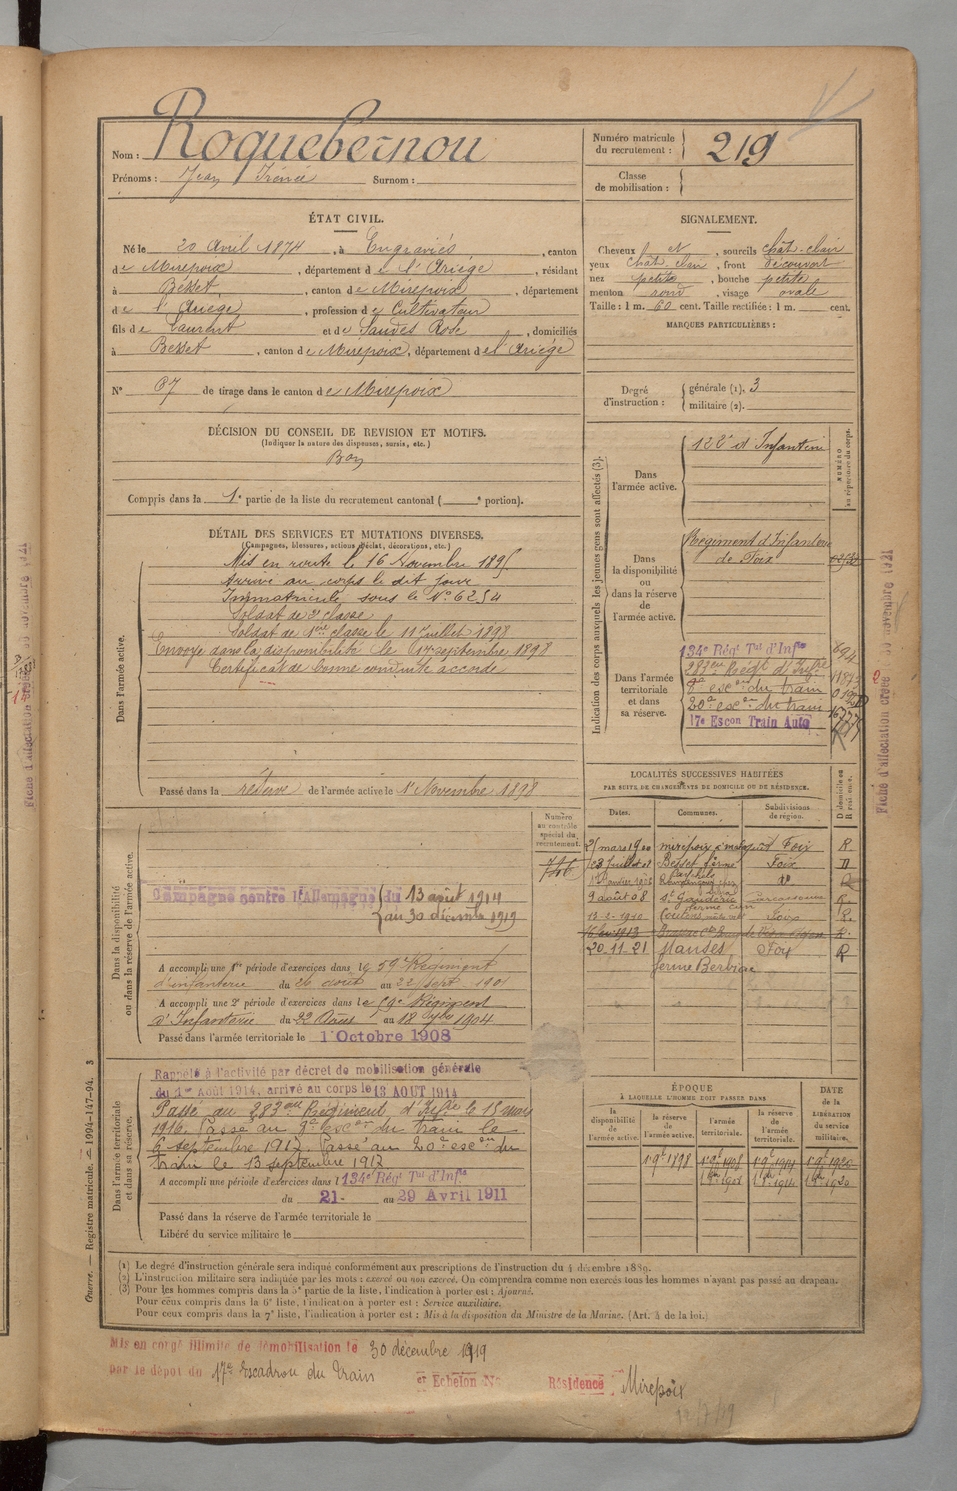 Nom : Roquebernou
Prénoms : Jean Irénée Surnom :
Numéro matricule du recrutement : 219
Classe de mobilisation :
ÉTAT CIVIL.
Né le 20 Avril 1874, à Engraviès, canton
de Mirepoix, département de l'Ariège, résidant
à Besset, canton de Mirepoix, département
de l'Ariège, profession de Cultivateur
fils de Laurent et de Saudès Rose, domiciliés
à Besset, canton de Mirepoix, département de l'Ariège
N° 67 de tirage dans le canton de Mirepoix
SIGNALEMENT.
Cheveux et sourcils chât-clair
yeux chât. clair, front découvert
nez petite, bouche petite
menton rond, visage ovale
Taille : 1 m. 60 cent. Taille rectifiée : 1 m. cent.
MARQUES PARTICULIÈRES :
Degré d'instruction : générale (1). 3
militaire (2).
DÉCISION DU CONSEIL DE REVISION ET MOTIFS.
(Indiquer la nature des dispenses, sursis, etc.)
Bon
Compris dans la 1e partie de la liste du recrutement cantonal ( e portion).
DÉTAIL DES SERVICES ET MUTATIONS DIVERSES.
(Campagnes, blessures, actions d'éclat, décorations, etc.)
Dans l'armée active.
Mis en route le 16 Novembre 1895
Arrivé au corps le dit jour
Immatriculé sous le N° 6254
Soldat de 2e classe
Soldat de 1ère classe le 11 Juillet 1898
Envoyé dans la disponibilité le 17 septembre 1898
Certificat de bonne conduite accordé
Passé dans la réserve de l'armée active le 1er Novembre 1898
Indication des corps auxquels les jeunes gens sont affectés (3).
NUMÉRO au répertoire du corps.
Dans l'armée active.
122e d'Infanterie
Dans la disponibilité ou dans la réserve de l'armée active.
Régiment d'Infanterie
de Foix
Dans l'armée territoriale et dans sa réserve.
134e Régt Tal d'Infie
283ème Régt d'Infie
9e escon du train
20e escon du train
17e Escon Train Auto
LOCALITÉS SUCCESSIVES HABITÉES
PAR SUITE DE CHANGEMENTS DE DOMICILE OU DE RÉSIDENCE.
Dates. Communes. Subdivisions de région. D domicile ou R résidence.
Foix R
Besset ferme Foix D
9 août 08 St Gaudéric Carcassonne R.
13-2-1910 Coutens Foix R.
20-11-21 Manses Foix R
ferme Berbiac
Numéro au contrôle spécial du recrutement.
746
Dans la disponibilité ou dans la réserve de l'armée active.
Campagne contre l'Allemagne du 13 août 1914
au 30 décembre 1919
A accompli une 1re période d'exercices dans le 59 Régiment
d'infanterie du 26 août au 22 sept 1901
A accompli une 2e période d'exercices dans le 59e Régiment
d'Infanterie du 22 Août au 18 7bre 1904
Passé dans l'armée territoriale le 1 Octobre 1908
Dans l'armée territoriale et dans sa réserve.
Rappelé à l'activité par décret de mobilisation générale
du 1er Août 1914, arrivé au corps le 13 AOUT 1914
Passé au 283ème Régiment d'Infie le 15 mars
1916. Passé au 9e escon du train le
6 septembre 1917. Passé au 20e escon du
train le 13 septembre 1917
A accompli une période d'exercices dans l 134e Régt Tal d'Infie
du 21- au 29 Avril 1911
Passé dans la réserve de l'armée territoriale le
Libéré du service militaire le
ÉPOQUE
À LAQUELLE L'HOMME DOIT PASSER DANS
la disponibilité de l'armée active. la réserve de l'armée active. l'armée territoriale. la réserve de l'armée territoriale.
DATE de la LIBÉRATION du service militaire.
(1) Le degré d'instruction générale sera indiqué conformément aux prescriptions de l'instruction du 4 décembre 1889.
(2) L'instruction militaire sera indiquée par les mots : exercé ou non exercé. On comprendra comme non exercés tous les hommes n'ayant pas passé au drapeau.
(3) Pour les hommes compris dans la 5e partie de la liste, l'indication à porter est : Ajourné.
Pour ceux compris dans la 6e liste, l'indication à porter est : Service auxiliaire.
Pour ceux compris dans la 7e liste, l'indication à porter est : Mis à la disposition du Ministre de la Marine. (Art. 4 de la loi.)
Guerre. — Registre matricule. — 1994-147-94. 3
Mis en congé illimité de démobilisation le 30 décembre 1919
par le dépôt du 17e Escadron du Train er Echelon N° Résidence Mirepoix